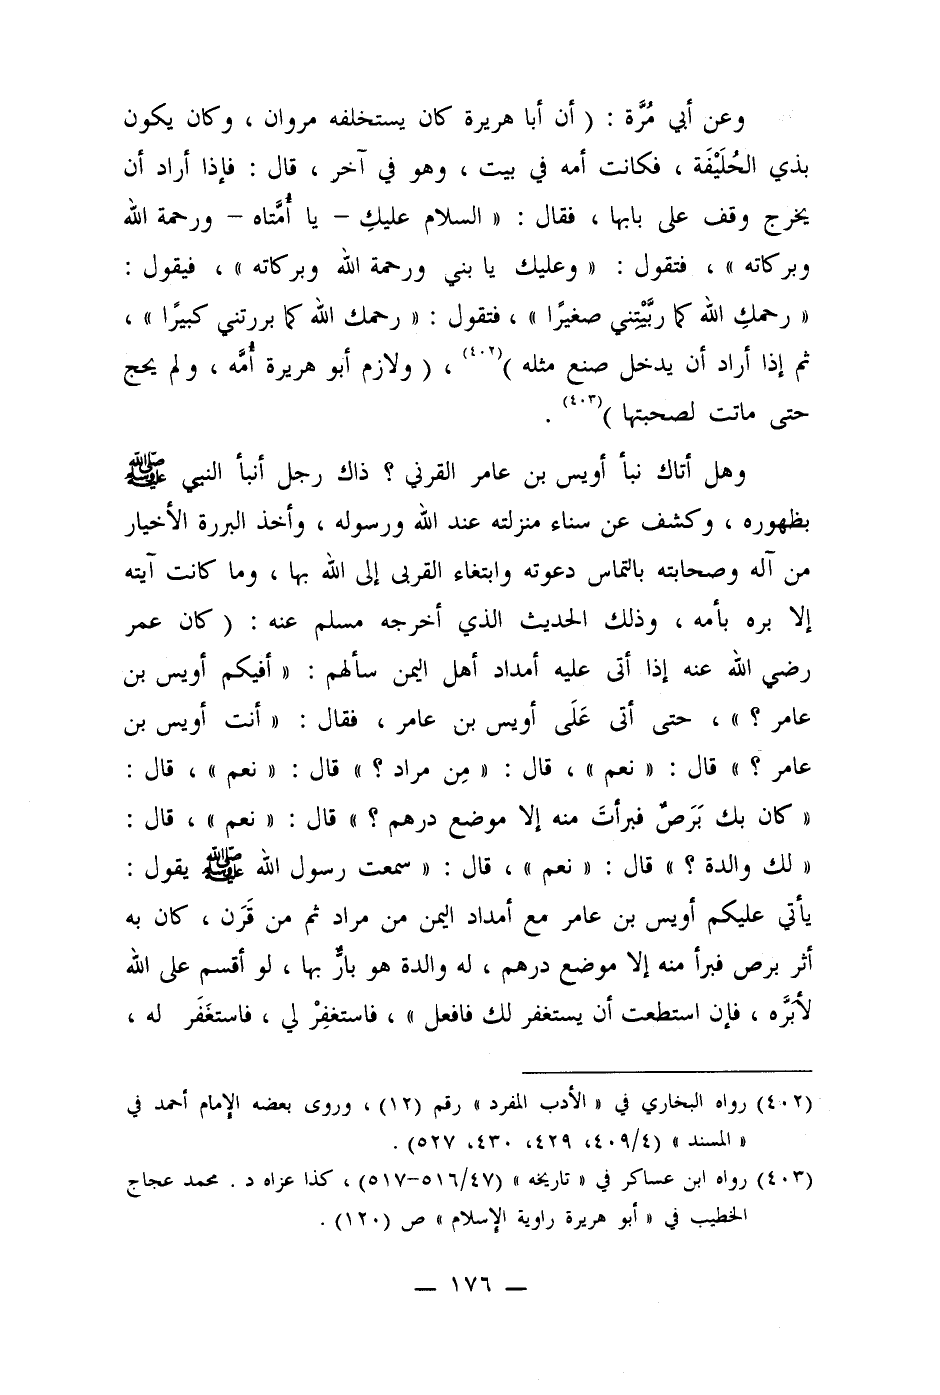 وعن أبي مُرَّة : ( أن أبا هريرة كان يستخلفه مروان ، وكان يكون
بذي الحُلَيْفَة ، فكانت أمه في بيت ، وهو في آخر ، قال : فإذا أراد أن
يخرج وقف على بابها ، فقال : « السلام عليكِ – يا أُمَّتاه – ورحمة الله
وبركاته » ، فتقول : « وعليك يا بني ورحمة الله وبركاته » ، فيقول :
« رحمكِ الله كما ربَّيْتِني صغيرًا » ، فتقول : « رحمك الله كما بررتني كبيرًا » ،
ثم إذا أراد أن يدخل صنع مثله )(٤٠٢) ، ( ولازم أبو هريرة أُمَّه ، ولم يحج
حتى ماتت لصحبتها )(٤٠٣) .
وهل أتاك نبأ أويس بن عامر القرني ؟ ذاك رجل أنبأ النبي ﷺ
بظهوره ، وكشف عن سناء منزلته عند الله ورسوله ، وأخذ البررة الأخيار
من آله وصحابته بالتماس دعوته وابتغاء القربى إلى الله بها ، وما كانت آيته
إلا بره بأمه ، وذلك الحديث الذي أخرجه مسلم عنه : ( كان عمر
رضي الله عنه إذا أتى عليه أمداد أهل اليمن سألهم : « أفيكم أويس بن
عامر ؟ » ، حتى أتى عَلَى أويس بن عامر ، فقال : « أنت أويس بن
عامر ؟ » قال : « نعم » ، قال : « مِن مراد ؟ » قال : « نعم » ، قال :
« كان بك بَرَصٌ فبرأتَ منه إلا موضع درهم ؟ » قال : « نعم » ، قال :
« لك والدة ؟ » قال : « نعم » ، قال : « سمعت رسول الله ﷺ يقول :
يأتي عليكم أويس بن عامر مع أمداد اليمن من مراد ثم من قَرَن ، كان به
أثر برص فبرأ منه إلا موضع درهم ، له والدة هو بارٌّ بها ، لو أقسم على الله
لأبَرَّه ، فإن استطعت أن يستغفر لك فافعل » ، فاستغفِرْ لي ، فاستغَفَر له ،
(٤٠٢) رواه البخاري في « الأدب المفرد » رقم (١٢) ، وروى بعضه الإمام أحمد في
« المسند » (٤٠٩/٤، ٤٢٩، ٤٣٠، ٥٢٧) .
(٤٠٣) رواه ابن عساكر في « تاريخه » (٥١٦/٤٧–٥١٧) ، كذا عزاه د . محمد عجاج
الخطيب في « أبو هريرة راوية الإسلام » ص (١٢٠) .
— ١٧٦ —